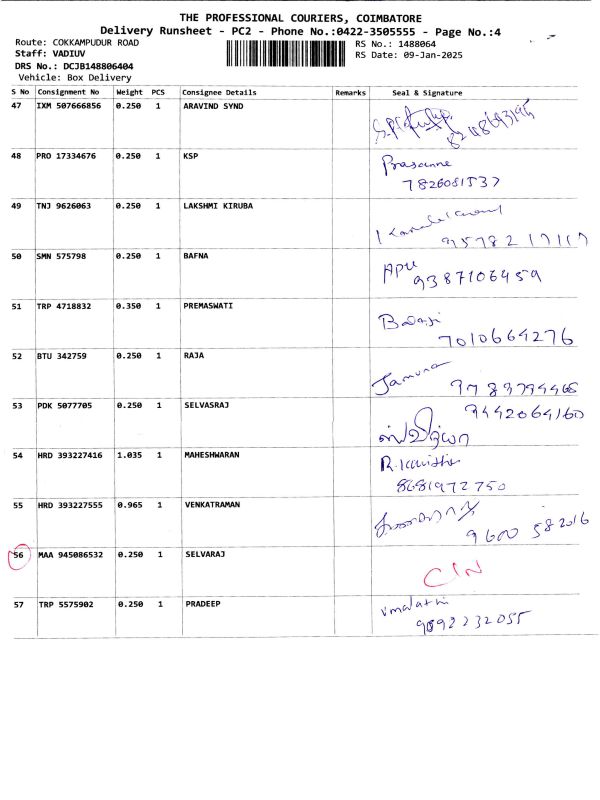 THE PROFESSIONAL COURIERS, COIMBATORE
Delivery Runsheet - PC2 - Phone No.:0422-3505555 - Page No.:4
Route: COKKAMPUDUR ROAD
RS No.: 1488064
Staff: VADIUV
RS Date: 09-Jan-2025
DRS No.: DCJB148806404
Vehicle: Box Delivery
S No Consignment No Weight PCS Consignee Details Remarks Seal & Signature
47 IXM 507666856 0.250 1 ARAVIND SYND
48 PRO 17334676 0.250 1 KSP Prasanne
7826081537
49 TNJ 9626063 0.250 1 LAKSHMI KIRUBA
50 SMN 575798 0.250 1 BAFNA APU
9387106459
51 TRP 4718832 0.350 1 PREMASWATI Balaji
7010664276
52 BTU 342759 0.250 1 RAJA Jamuna
53 PDK 5077705 0.250 1 SELVASRAJ 9442064160
54 HRD 393227416 1.035 1 MAHESHWARAN
8681972750
55 HRD 393227555 0.965 1 VENKATRAMAN
9600 582016
56 MAA 945086532 0.250 1 SELVARAJ C/N
57 TRP 5575902 0.250 1 PRADEEP Vmalathi
9892232055